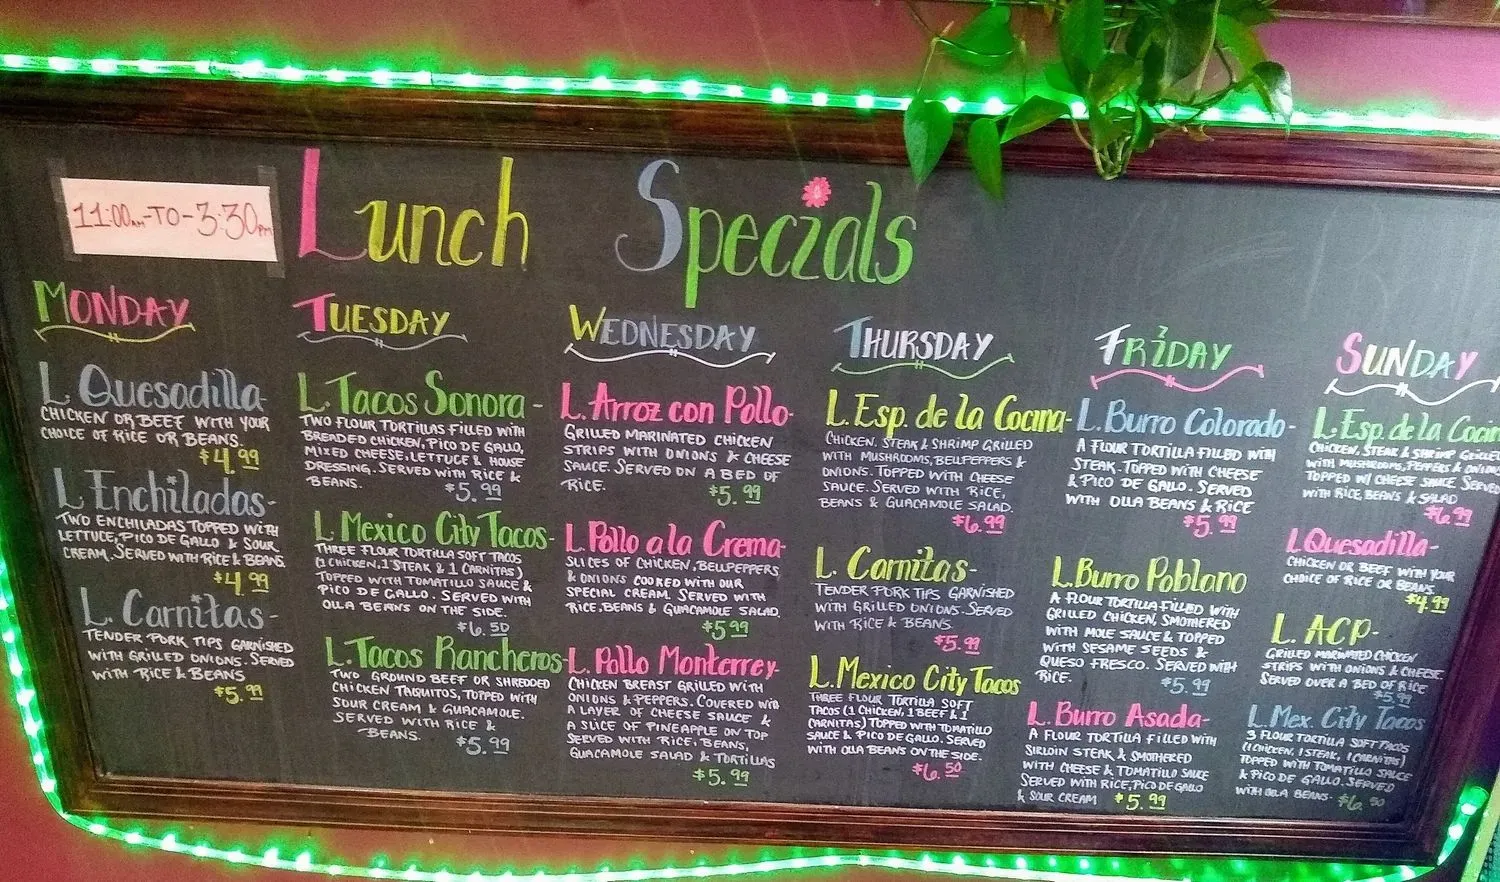 11:00AM-TO-3:30PM
Lunch Specials
MONDAY
L. Quesadilla
CHICKEN OR BEEF WITH YOUR
CHOICE OF RICE OR BEANS.
$4.99
L. Enchiladas-
TWO ENCHILADAS TOPPED WITH
LETTUCE, PICO DE GALLO & SOUR
CREAM. SERVED WITH RICE & BEANS.
$4.99
L. Carnitas-
TENDER PORK TIPS GARNISHED
WITH GRILLED ONIONS. SERVED
WITH RICE & BEANS
$5.99
TUESDAY
L. Tacos Sonora-
TWO FLOUR TORTILLAS FILLED WITH
BREADED CHICKEN, PICO DE GALLO,
MIXED CHEESE, LETTUCE & HOUSE
DRESSING. SERVED WITH RICE &
BEANS.
$5.99
L. Mexico City Tacos-
THREE FLOUR TORTILLA SOFT TACOS
(1 CHICKEN, 1 STEAK & 1 CARNITAS)
TOPPED WITH TOMATILLO SAUCE &
PICO DE GALLO. SERVED WITH
OLLA BEANS ON THE SIDE.
$6.50
L. Tacos Rancheros-
TWO GROUND BEEF OR SHREDDED
CHICKEN TAQUITOS, TOPPED WITH
SOUR CREAM & GUACAMOLE.
SERVED WITH RICE &
BEANS.
$5.99
WEDNESDAY
L. Arroz con Pollo-
GRILLED MARINATED CHICKEN
STRIPS WITH ONIONS & CHEESE
SAUCE. SERVED ON A BED OF
RICE.
$5.99
L. Pollo a la Crema-
SLICES OF CHICKEN, BELLPEPPERS
& ONIONS COOKED WITH OUR
SPECIAL CREAM. SERVED WITH
RICE, BEANS & GUACAMOLE SALAD.
$5.99
L. Pollo Monterrey-
CHICKEN BREAST GRILLED WITH
ONIONS & PEPPERS. COVERED WITH
A LAYER OF CHEESE SAUCE &
A SLICE OF PINEAPPLE ON TOP
SERVED WITH RICE, BEANS,
GUACAMOLE SALAD & TORTILLAS
$5.99
THURSDAY
L. Esp. de la Cocina-
CHICKEN, STEAK & SHRIMP GRILLED
WITH MUSHROOMS, BELLPEPPERS &
ONIONS. TOPPED WITH CHEESE
SAUCE. SERVED WITH RICE,
BEANS & GUACAMOLE SALAD.
$6.99
L. Carnitas-
TENDER PORK TIPS GARNISHED
WITH GRILLED ONIONS. SERVED
WITH RICE & BEANS.
$5.99
L. Mexico City Tacos
THREE FLOUR TORTILLA SOFT
TACOS (1 CHICKEN, 1 BEEF & 1
CARNITAS) TOPPED WITH TOMATILLO
SAUCE & PICO DE GALLO. SERVED
WITH OLLA BEANS ON THE SIDE.
$6.50
FRIDAY
L. Burro Colorado-
A FLOUR TORTILLA FILLED WITH
STEAK. TOPPED WITH CHEESE
& PICO DE GALLO. SERVED
WITH OLLA BEANS & RICE
$5.99
L. Burro Poblano
A FLOUR TORTILLA FILLED WITH
GRILLED CHICKEN, SMOTHERED
WITH MOLE SAUCE & TOPPED
WITH SESAME SEEDS &
QUESO FRESCO. SERVED WITH
RICE.
$5.99
L. Burro Asada-
A FLOUR TORTILLA FILLED WITH
SIRLOIN STEAK & SMOTHERED
WITH CHEESE & TOMATILLO SAUCE
SERVED WITH RICE, PICO DE GALLO
& SOUR CREAM $5.99
SUNDAY
L. Esp. de la Cocin
CHICKEN, STEAK & SHRIMP GRILLED
WITH MUSHROOMS, PEPPERS & ONIONS
TOPPED W/ CHEESE SAUCE. SERVED
WITH RICE, BEANS & SALAD
$6.99
L Quesadilla-
CHICKEN OR BEEF WITH YOUR
CHOICE OF RICE OR BEANS
$4.99
L. ACP-
GRILLED MARINATED CHICKEN
STRIPS WITH ONIONS & CHEESE.
SERVED OVER A BED OF RICE
$5.99
L. Mex. City Tacos
3 FLOUR TORTILLA SOFT TACOS
(1 CHICKEN, 1 STEAK, 1 CARNITAS)
TOPPED WITH TOMATILLO SAUCE
& PICO DE GALLO. SERVED
WITH OLLA BEANS- $6.50